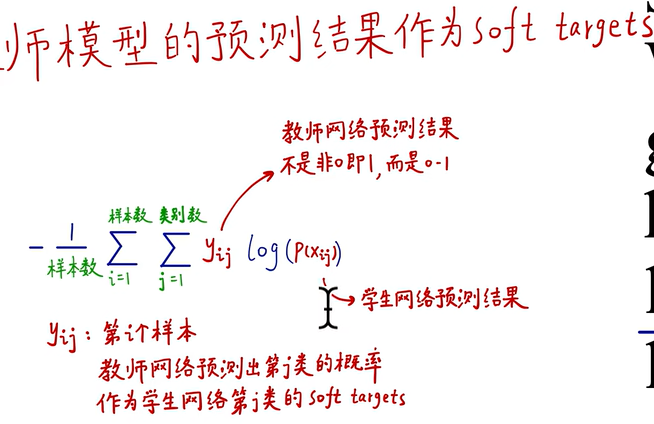 师模型的预测结果作为soft targets
教师网络预测结果
不是非0即1,而是0-1
样本数 类别数
- 1/样本数 ∑ ∑ yij log(P(xij))
i=1 j=1
学生网络预测结果
yij: 第i个样本
教师网络预测出第j类的概率
作为学生网络第j类的 soft targets